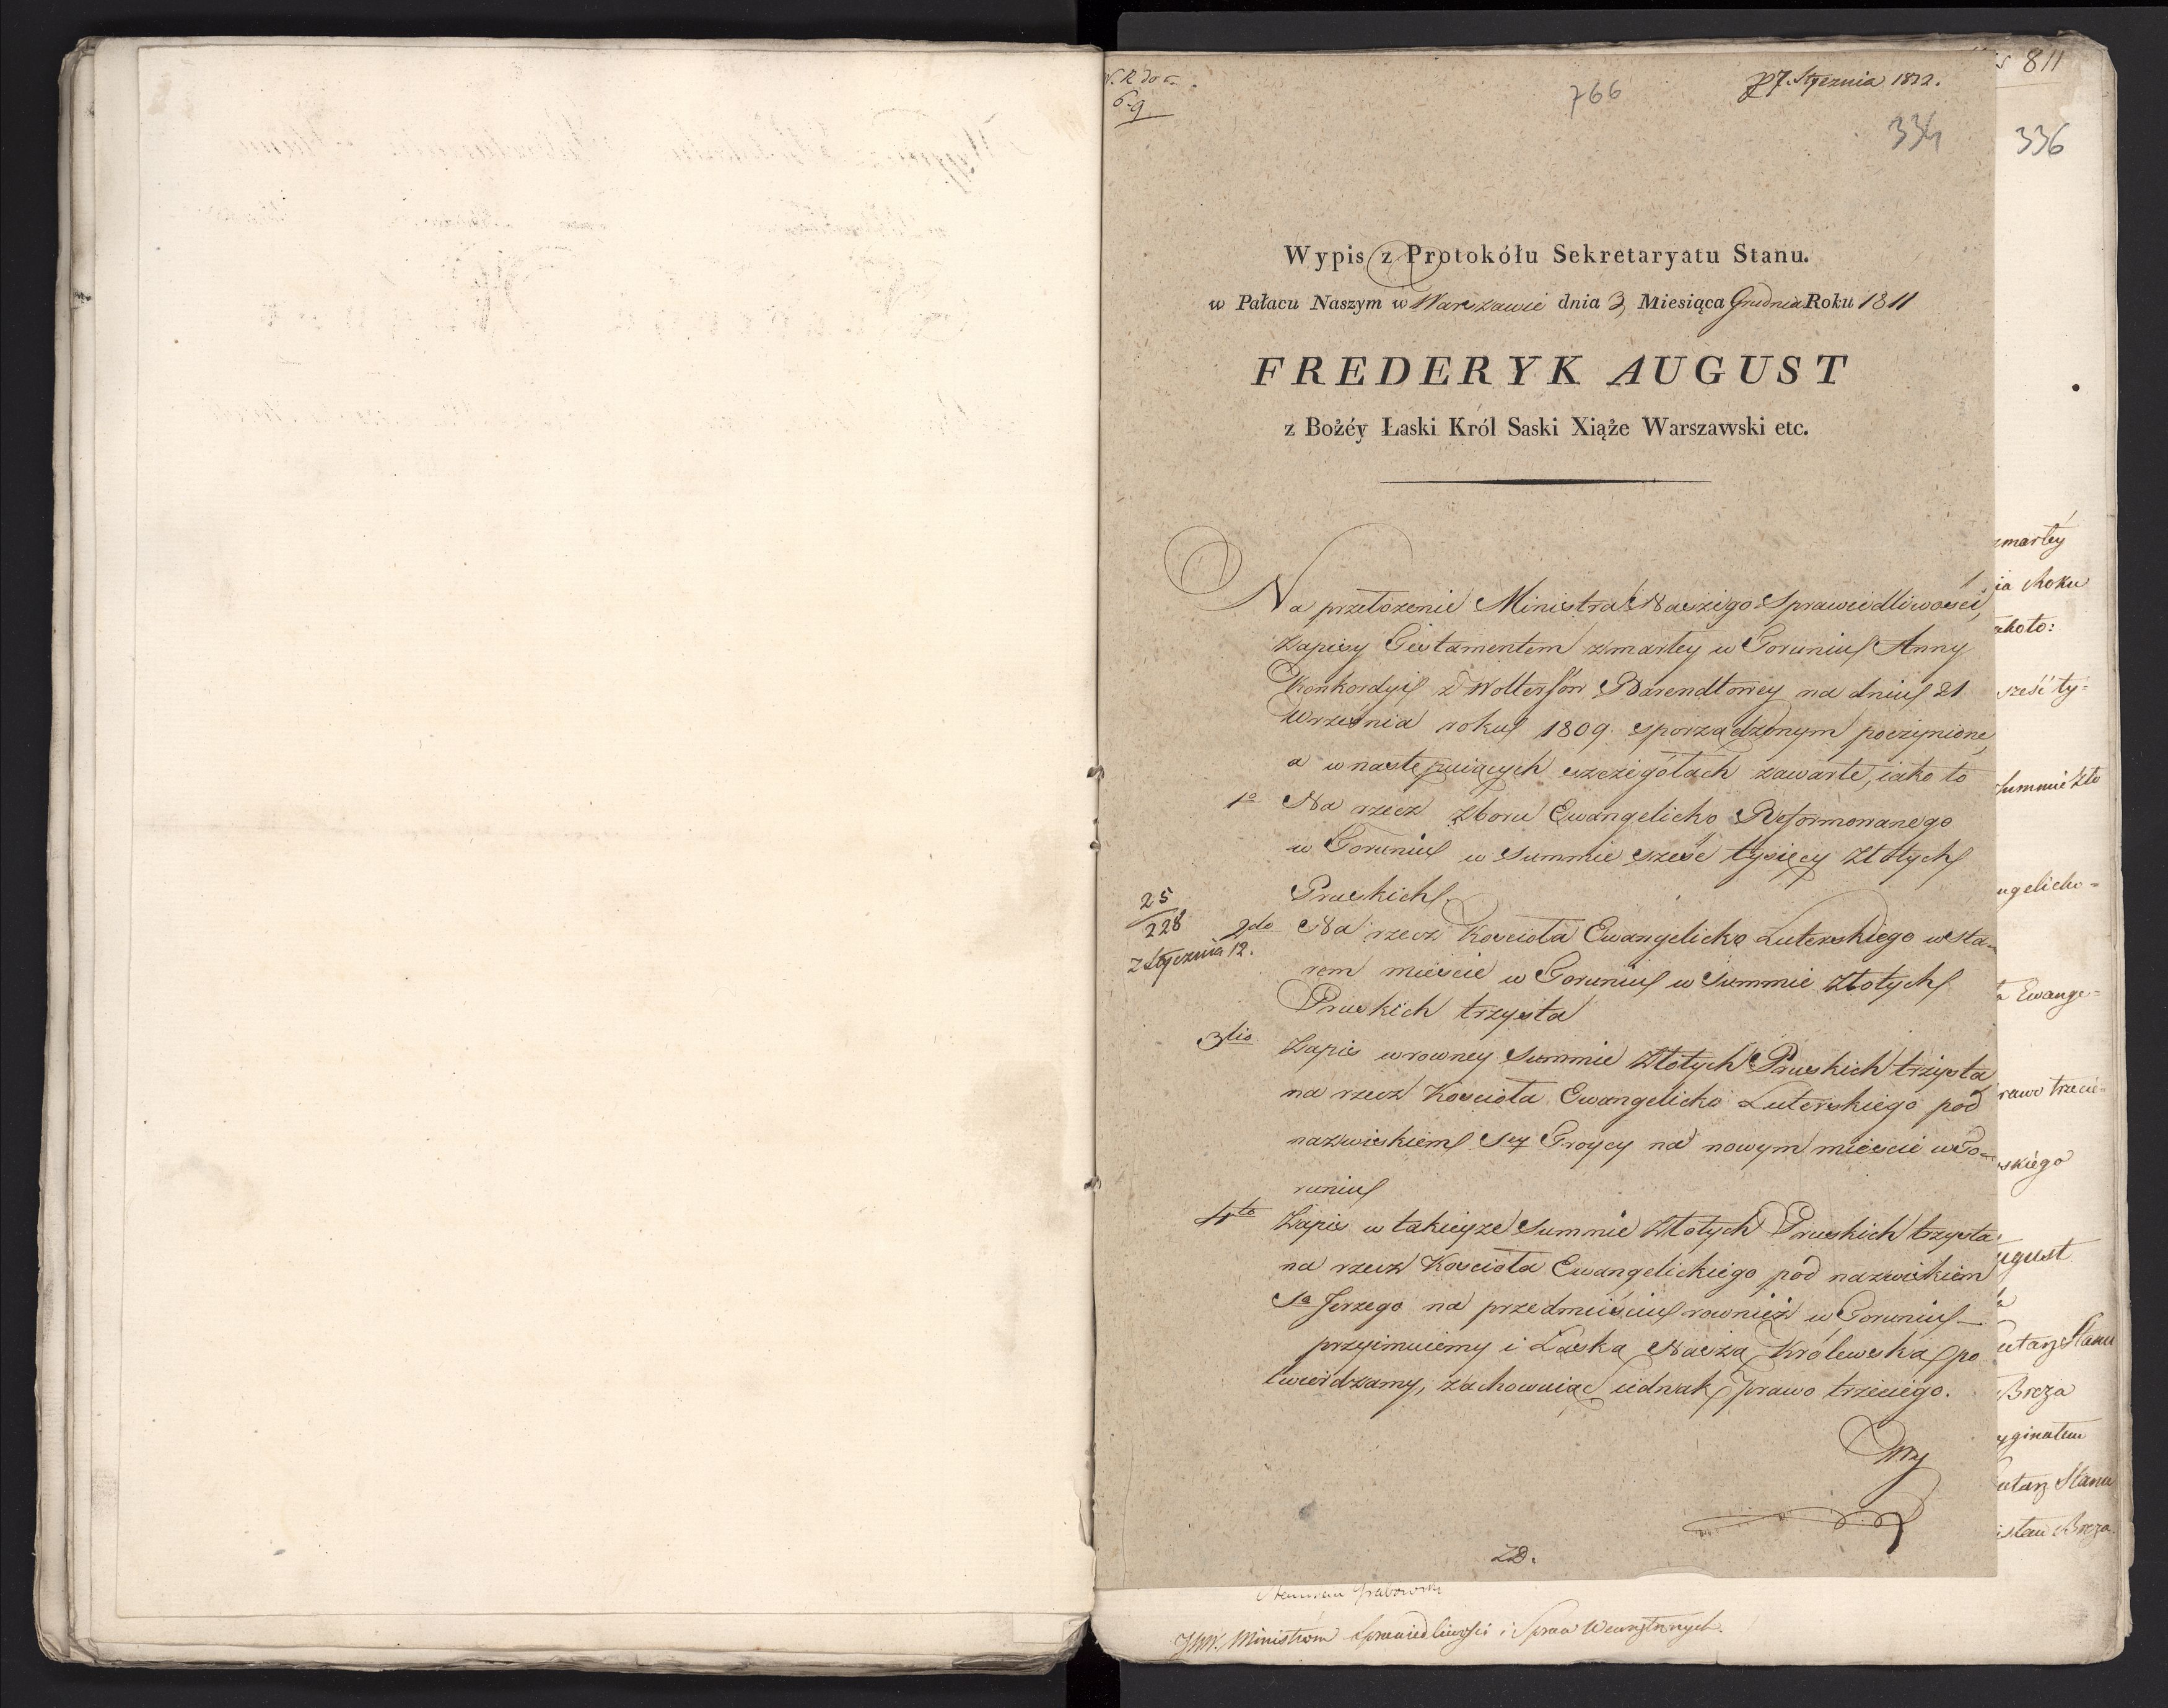 N. 12 do
6.9
766
p 7. Stycznia 1812.
334
811
336
Wypis z Protokółu Sekretaryatu Stanu.
w Pałacu Naszym w Warszawie dnia 3 Miesiąca Grudnia Roku 1811
FREDERYK AUGUST
z Bożéy Łaski Król Saski Xiąże Warszawski etc.
Na przełożenie Ministra Naszego Sprawiedliwości,
Zapisy Testamentem zmarłey w Toruniu Anny
Konkordyi z Wolterson Barendtowey na dniu 21
Września roku 1809. sporządzonym poczynione,
a w następuiących szczegółach zawarte, iako to
1o Na rzecz Zboru Ewangelicko Reformowanego
w Toruniu w Summie sześć tysięcy Złotych
Pruskich.
25
228
2 Stycznia 12.
2do Na rzecz Kościoła Ewangelicko Luterskiego w Sta-
rem mieście w Toruniu w Summie Złotych
Pruskich trzysta
3tio Zapis w rowney Summie Złotych Pruskich trzysta
na rzecz Kościoła Ewangelicko Luterskiego pod
nazwiskiem Sey Troycy na nowym mieście w To-
runiu
4to Zapis w takieyże Summie Złotych Pruskich trzysta
na rzecz Kościoła Ewangelickiego pod nazwiskiem
So Jerzego na przedmieściu rownież w Toruniu —
przyimuiemy i Łaską Naszą Królewską po
twierdzamy, zachowuiąc iednak prawo trzeciego.
ZD.
Stanisław Grabowski
JWW. Ministróm Sprawiedliwości i Spraw Wewnętrznych.
zmarłey
ia Roku
sześć ty=
Summie Zło
ngelicko=
a Ewange=
rawo trzecie=
skiego
ugust
etarz Stanu
Breza
yginałem
etarz Stanu
isław Breza.